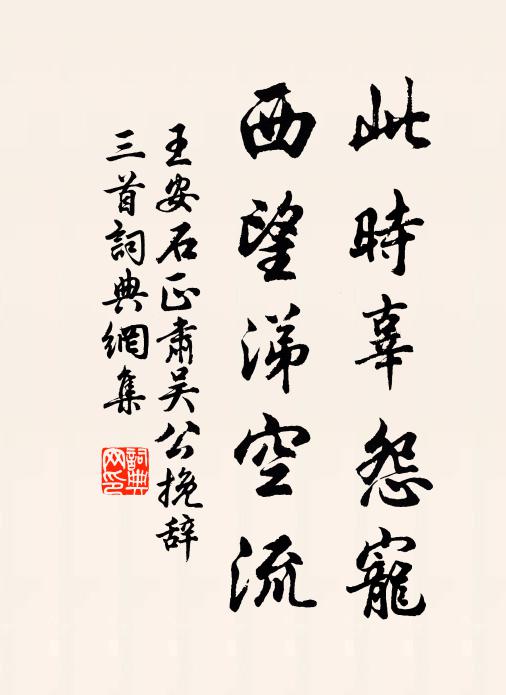 此時辜怨寵
西望涕空流
王安石正肅吴公挽辞
三首詞典網集
詞典网印